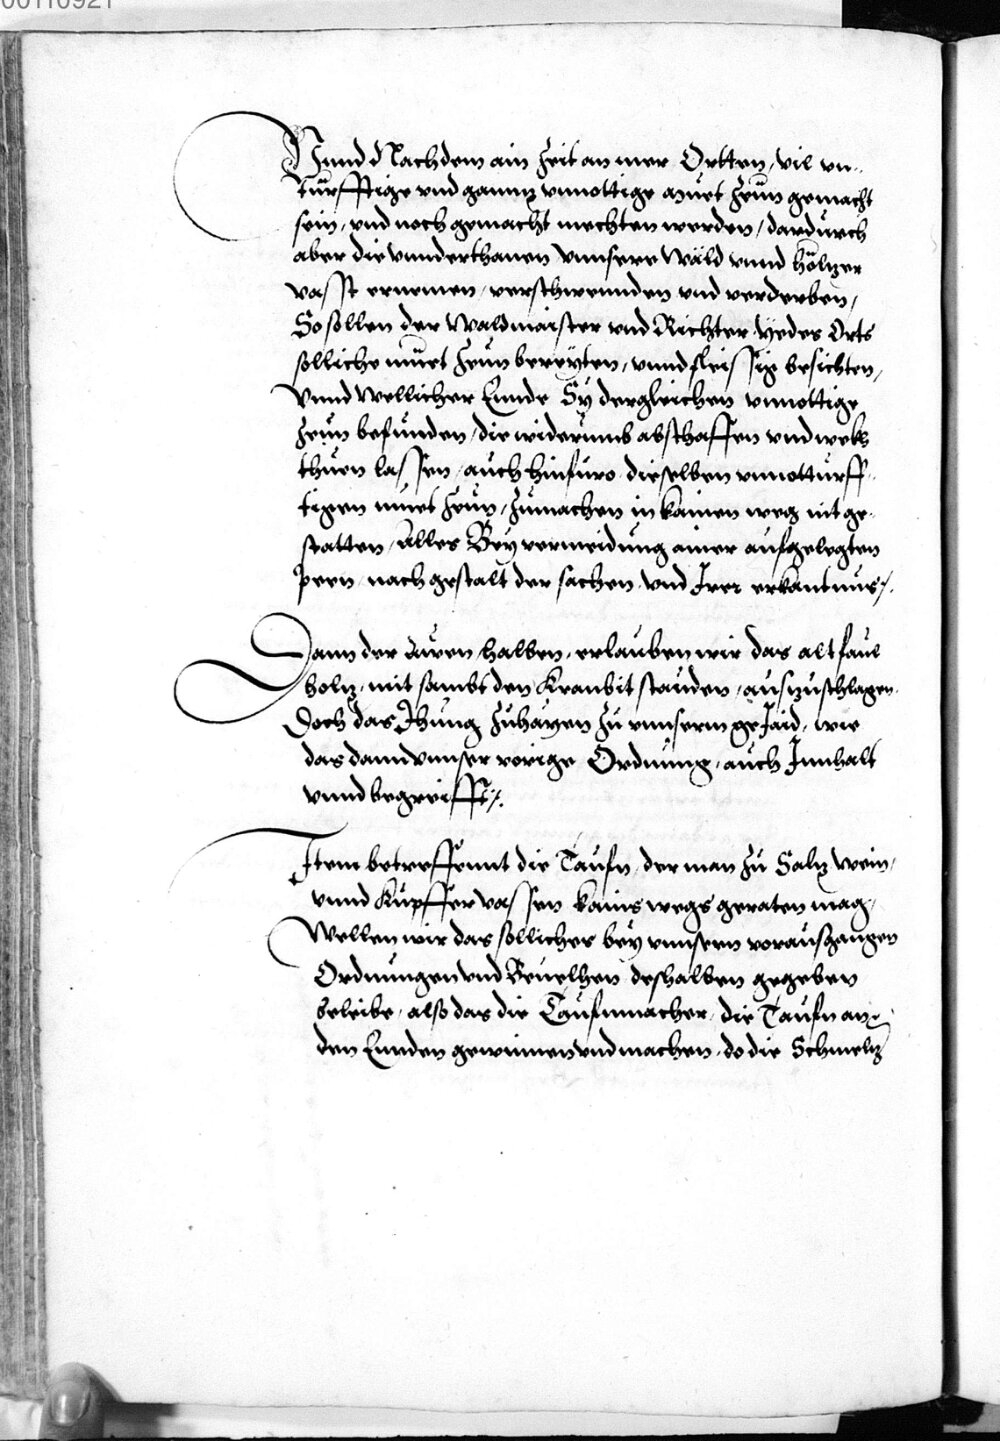 00110921
Vnnd Nachdem ain Zeit an mer Ortten, vil vn-
türfftige vnd gannz vnnottige Zeün gemacht
sein, vnd noch gemacht mechten werden, dardurch
aber die vnnderthanen vnnsere Wäld vnnd hölzer
vasst ernemen, verschwennden vnd verderben,
So sollen der Waldmaister vnd Richter yedes Orts
solliche Zeün bereyten, vnnd fleissig besichten,
Vnnd Wellicher Ennde Sy dergleichen vnnottige
Zeün befunden, die widerumb abschaffen vnd wekh
thuen lassen, auch hinfuro dieselben vnnotturff-
tigen Zeün, zumachen in kainen weg nit ge-
statten, Alles Bey vermeidung ainer aufgelegten
peen, nach gestalt der sachen, vnd Irer erkantnus.
Dann der halben, erlauben wir das alt faul
holz, mit sambt den Kranbit stauden, auszuschlagen.
Doch das Jhung zuhayen zu vnnserm geJaid, wie
das dann vnnser vorige Ordnung, auch Innhalt
vnnd begreifft.
Item betreffennt die Taufn, der man zu Salz Wein,
vnnd Kupffer vassen kains wegs geraten mag,
Wellen wir das solliches bey vnnsern vorausgangen
Ordnungen vnd Beuelhen deshalben gegeben
beleibe, also das die Taufnmacher, die Taufn an
den Ennden gewinnen vnd machen, do die Schmelz